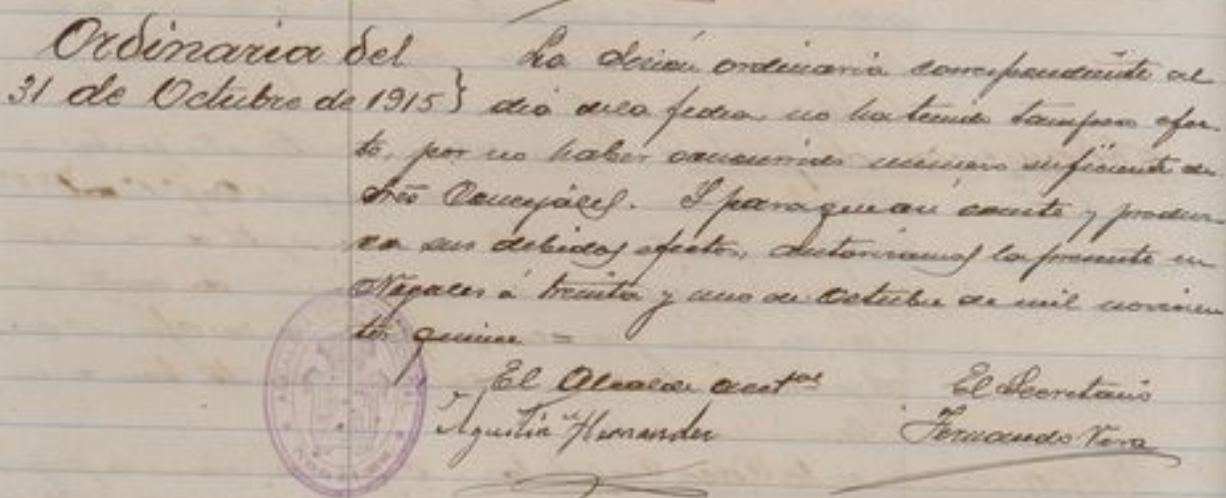 Ordinaria del
31 de Octubre de 1915}
La Sesión ordinaria correspondiente al
día de la fecha, no ha tenido tampoco efec-
to, por no haber concurrido número suficiente de
Sres Concejales. Y para que así conste y produz-
ca sus debidos efectos, autorizamos la presente en
Nogales á treinta y uno de Octubre de mil novecien
tos quince =
El Alcalde acctal
Agustin Hernandez
El Secretario
Fernando Vera